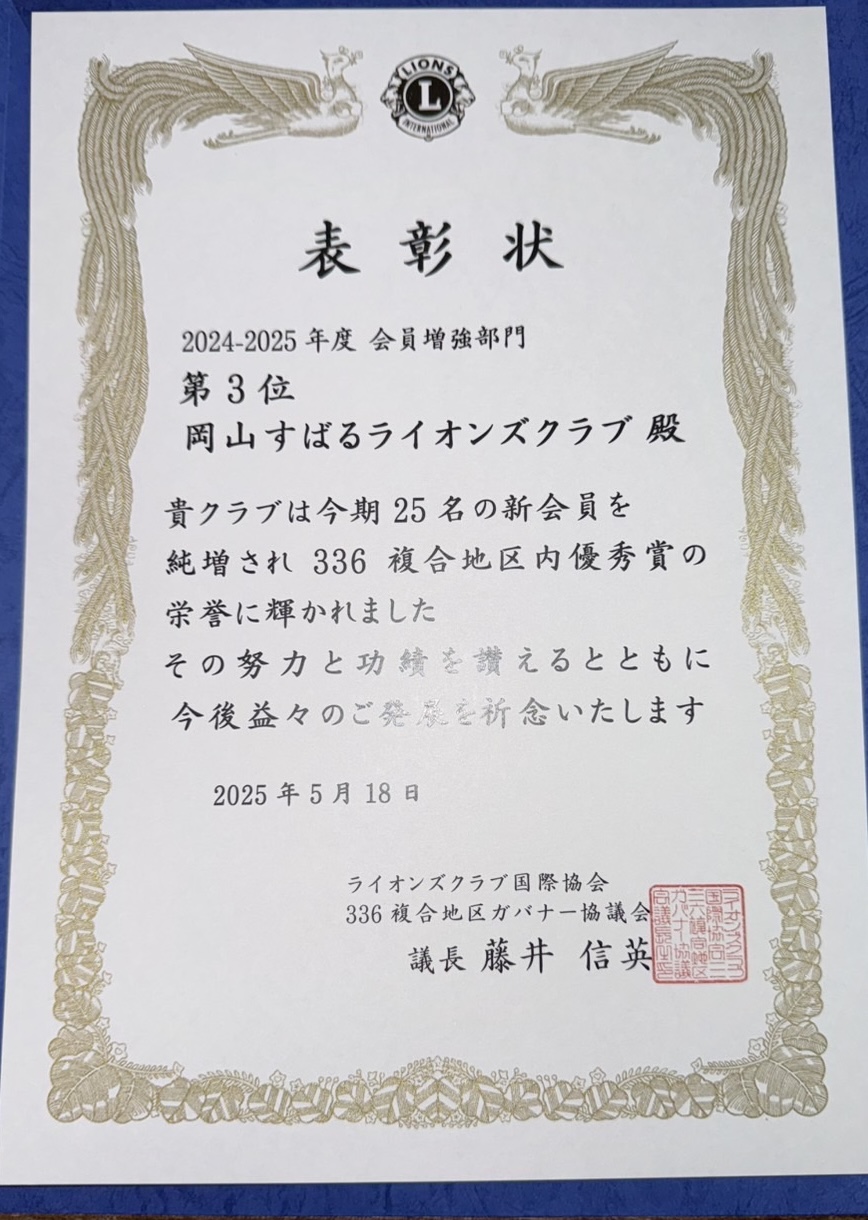 LIONS
L
INTERNATIONAL
表彰状
2024-2025 年度 会員増強部門
第 3 位
岡山すばるライオンズクラブ 殿
貴クラブは今期 25 名の新会員を
純増され 336 複合地区内優秀賞の
栄誉に輝かれました
その努力と功績を讃えるとともに
今後益々のご発展を祈念いたします
2025 年 5 月 18 日
ライオンズクラブ国際協会
336 複合地区ガバナー協議会
議長 藤井 信英